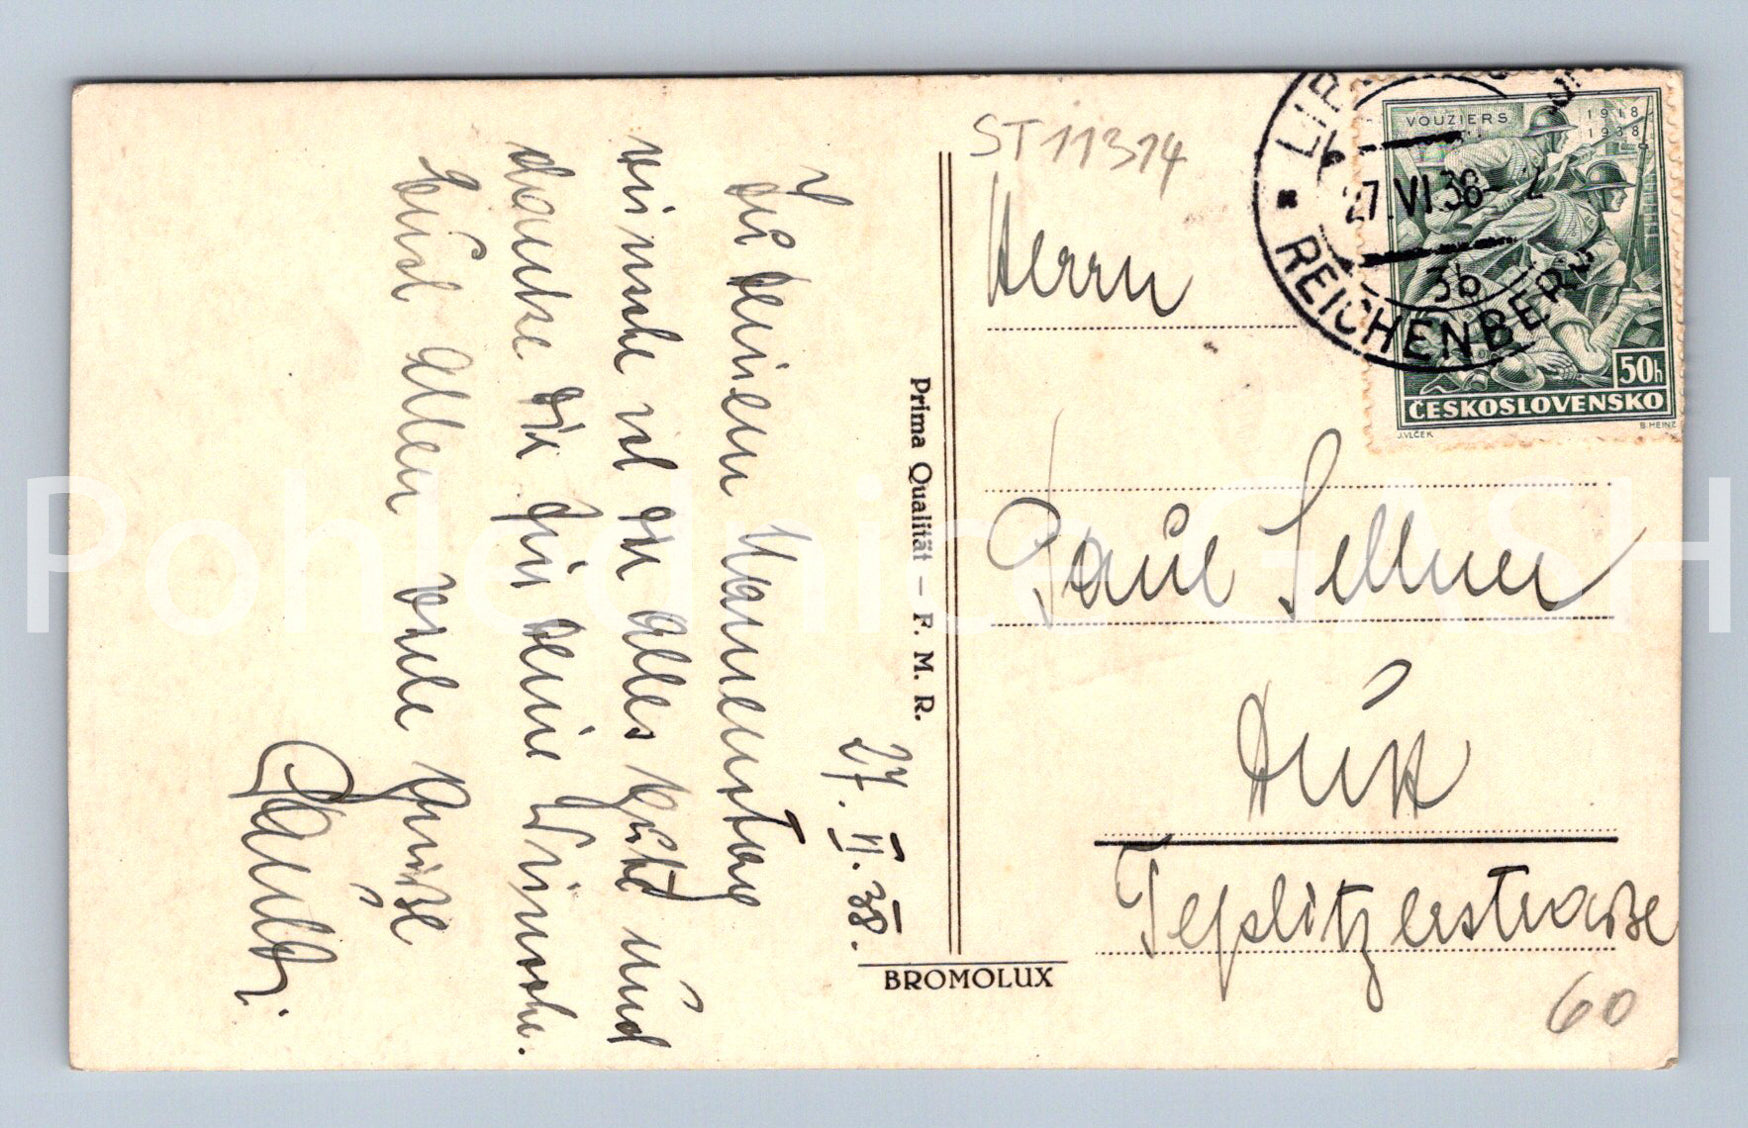 27. VI. 38.
Zu deinem Namenstag
wünsche ich dir alles Gute und
danke dir für deine Wünsche.
Euch allen viele Grüße
ST 11314
Herrn
Paul Sellner
Dux
Teplitzerstraße
60
Prima Qualität – F. M. R.
BROMOLUX
VOUZIERS
1918
1938
50h
ČESKOSLOVENSKO
J.VLČEK
B.HEINZ
27.VI.38
3b
REICHENBERG
Pohlednice SH